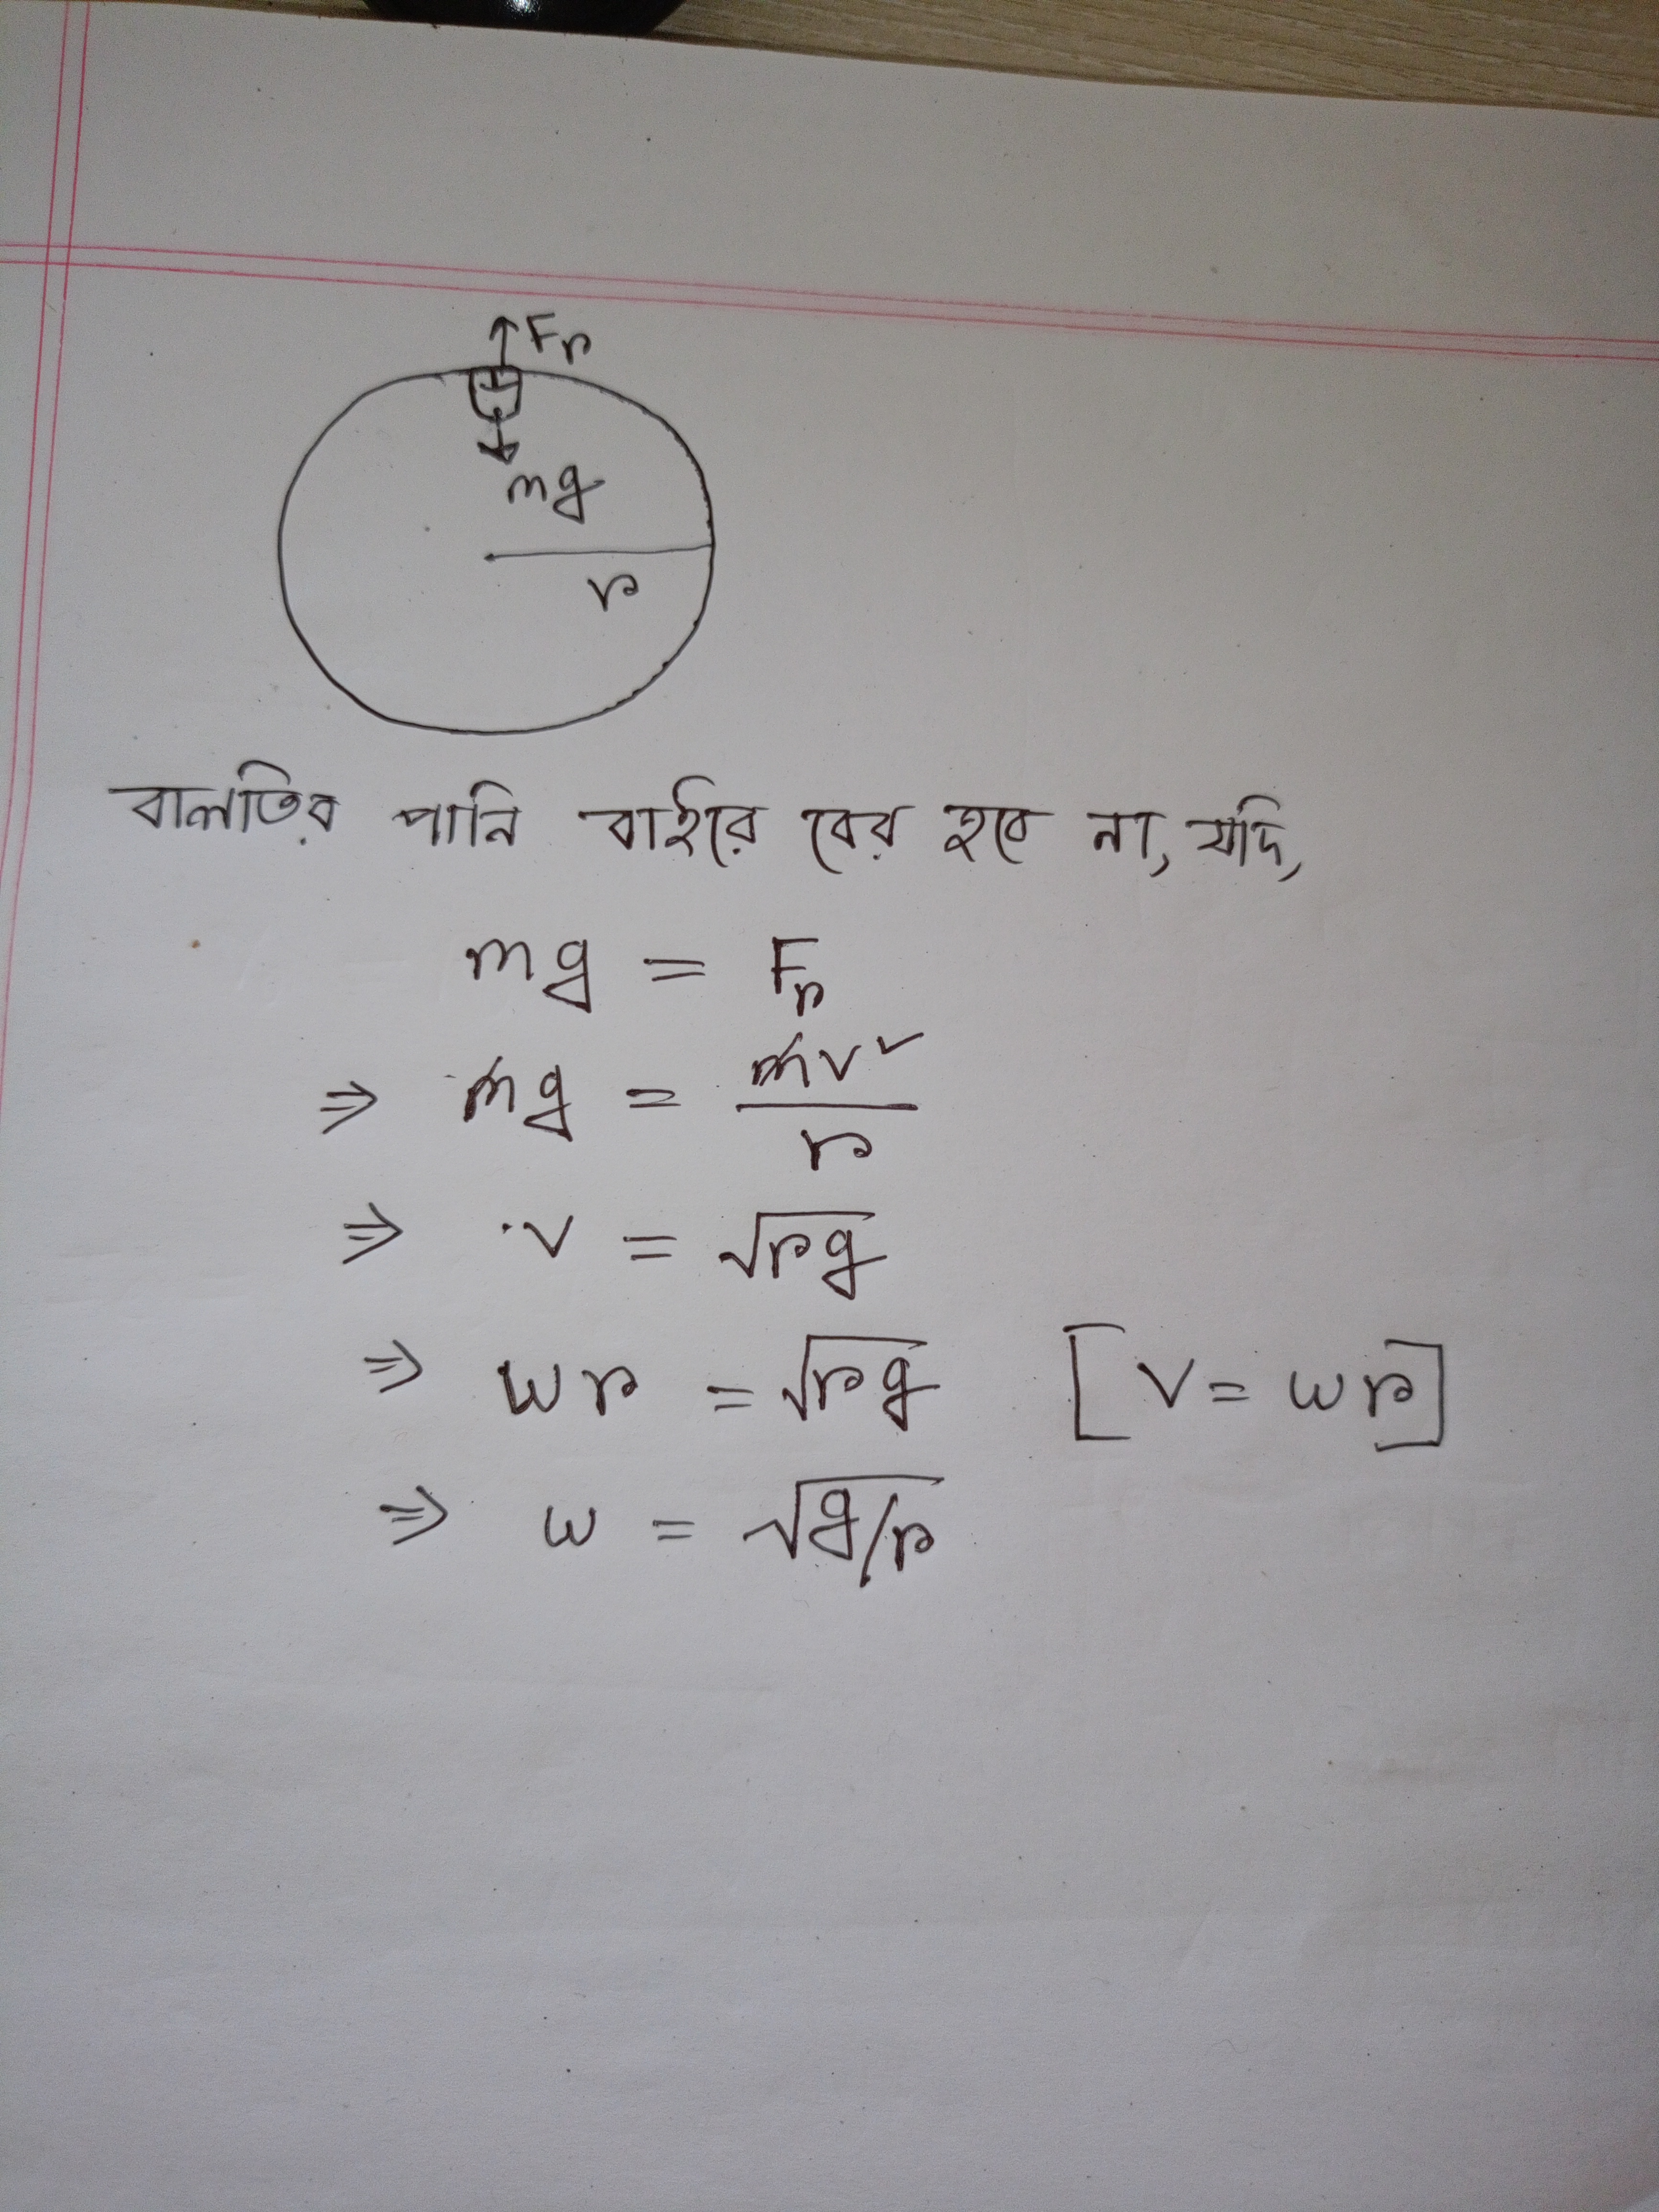 Fr
mg
r
বালতির পানি বাইরে বের হবে না, যদি,
mg = Fr
⇒ mg = mv²/r
⇒ v = √rg
⇒ ωr = √rg [v = ωr]
⇒ ω = √g/r